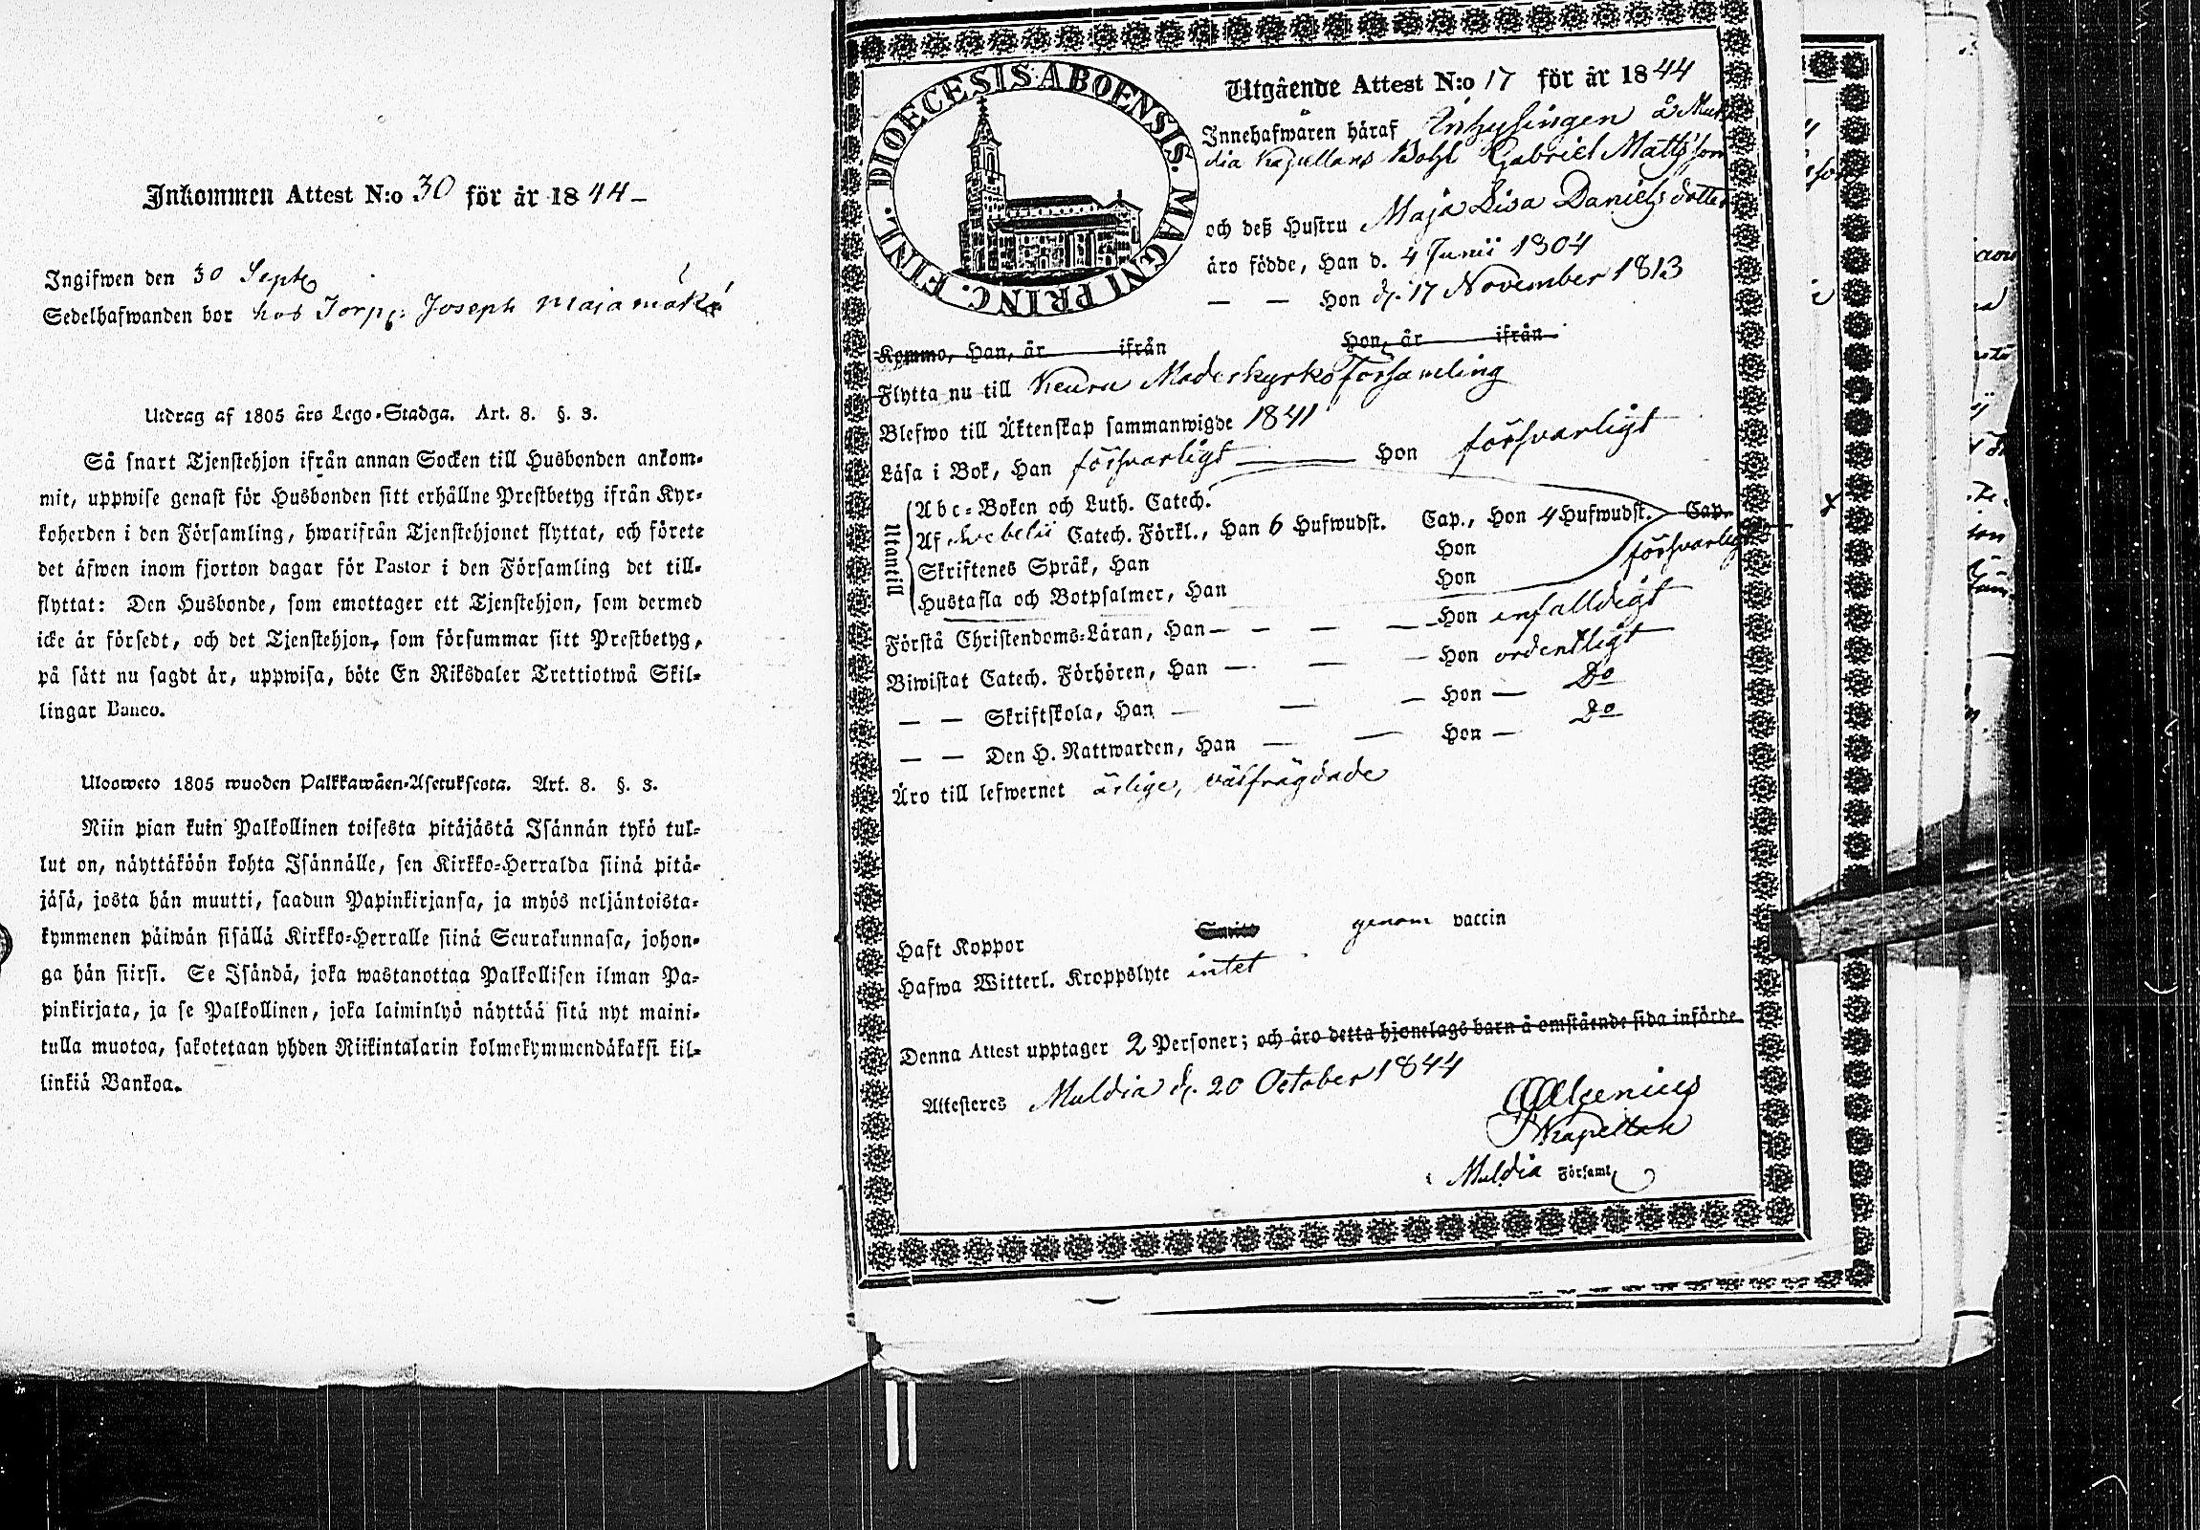 Inkommen Attest N:o 30 för år 1844
Ingifwen den 30 Sept
Sedelhafwanden bor hos Torp: Joseph Majamäki
Utdrag af 1805 års Lego-Stadga. Art. 8. §. 3.
Så snart Tjenstehjon ifrån annan Socken till Husbonden ankom-
mit, uppwise genast för Husbonden sitt erhållne Prestbetyg ifrån Kyr-
koherden i den Församling, hwarifrån Tjenstehjonet flyttat, och förete
det äfwen inom fjorton dagar för Pastor i den Församling det till-
flyttat: Den Husbonde, som emottager ett Tjenstehjon, som dermed
icke är försedt, och det Tjenstehjon, som försummar sitt Prestbetyg,
på sätt nu sagdt är, uppwisa, böte En Riksdaler Trettiotwå Skil-
lingar Banco.
Uloswetο 1805 wuoden Palkkawäen-Asetuksesta. Art. 8. §. 3.
Niin pian kuin Palkollinen toisesta pitäjästä Isännän tykö tul-
lut on, näyttäköön kohta Isännälle, sen Kirkko-Herralda siinä pitä-
jäsä, josta hän muutti, saadun Papinkirjansa, ja myös neljäntoista-
kymmenen päiwän sisällä Kirkko-Herralle siinä Seurakunnasa, johon-
ga hän siirsi. Se Isändä, joka wastanottaa Palkollisen ilman Pa-
pinkirjata, ja se Palkollinen, joka laiminlyö näyttää sitä nyt maini-
tulla muotoa, sakotetaan yhden Riikintalarin kolmekymmendäkaksi kil-
linkiä Bankoa.
DIOECESIS ABOENSIS. MAGNI PRINC. FINL.
Utgående Attest N:o 17 för år 1844
Innehafwaren häraf Inhysingen å Mul
dia Kapellans Bohl Gabriel Mattsson
och deß Hustru Maja Lisa Danielsdotter
äro födde, Han d. 4 Junii 1804
— — Hon d. 17 November 1813
Komma, Han, år ifrån Hon, år ifrån
Flytta nu till Keuru Moderkyrko Församling
Blefwo till Äktenskap sammanwigde 1841
Läsa i Bok, Han försvarligt Hon försvarligt
Utantill
Abc-Boken och Luth. Catech.
Af Svebelii Catech. Förkl., Han 6 Hufwudst. Cap., Hon 4 Hufwudst. Cap.
Skriftenes Språk, Han Hon försvarligt
Hustafla och Botpsalmer, Han Hon
Förstå Christendoms-Läran, Han — — — Hon enfalldigt
Biwistat Catech. Förhören, Han — — — Hon ordentligt
— — Skriftskola, Han — — — Hon — Do
— — Den H. Nattwarden, Han — — Hon — Do
Äro till lefwernet ärlige, välfrägdade
Haft Koppor genom vaccin
Hafwa Witterl. Kroppslyte intet
Denna Attest upptager 2 Personer; och äro detta hjonelags barn å omstående sida införde
Attesteres Muldia d. 20 October 1844
Kapellan
Muldia Församl